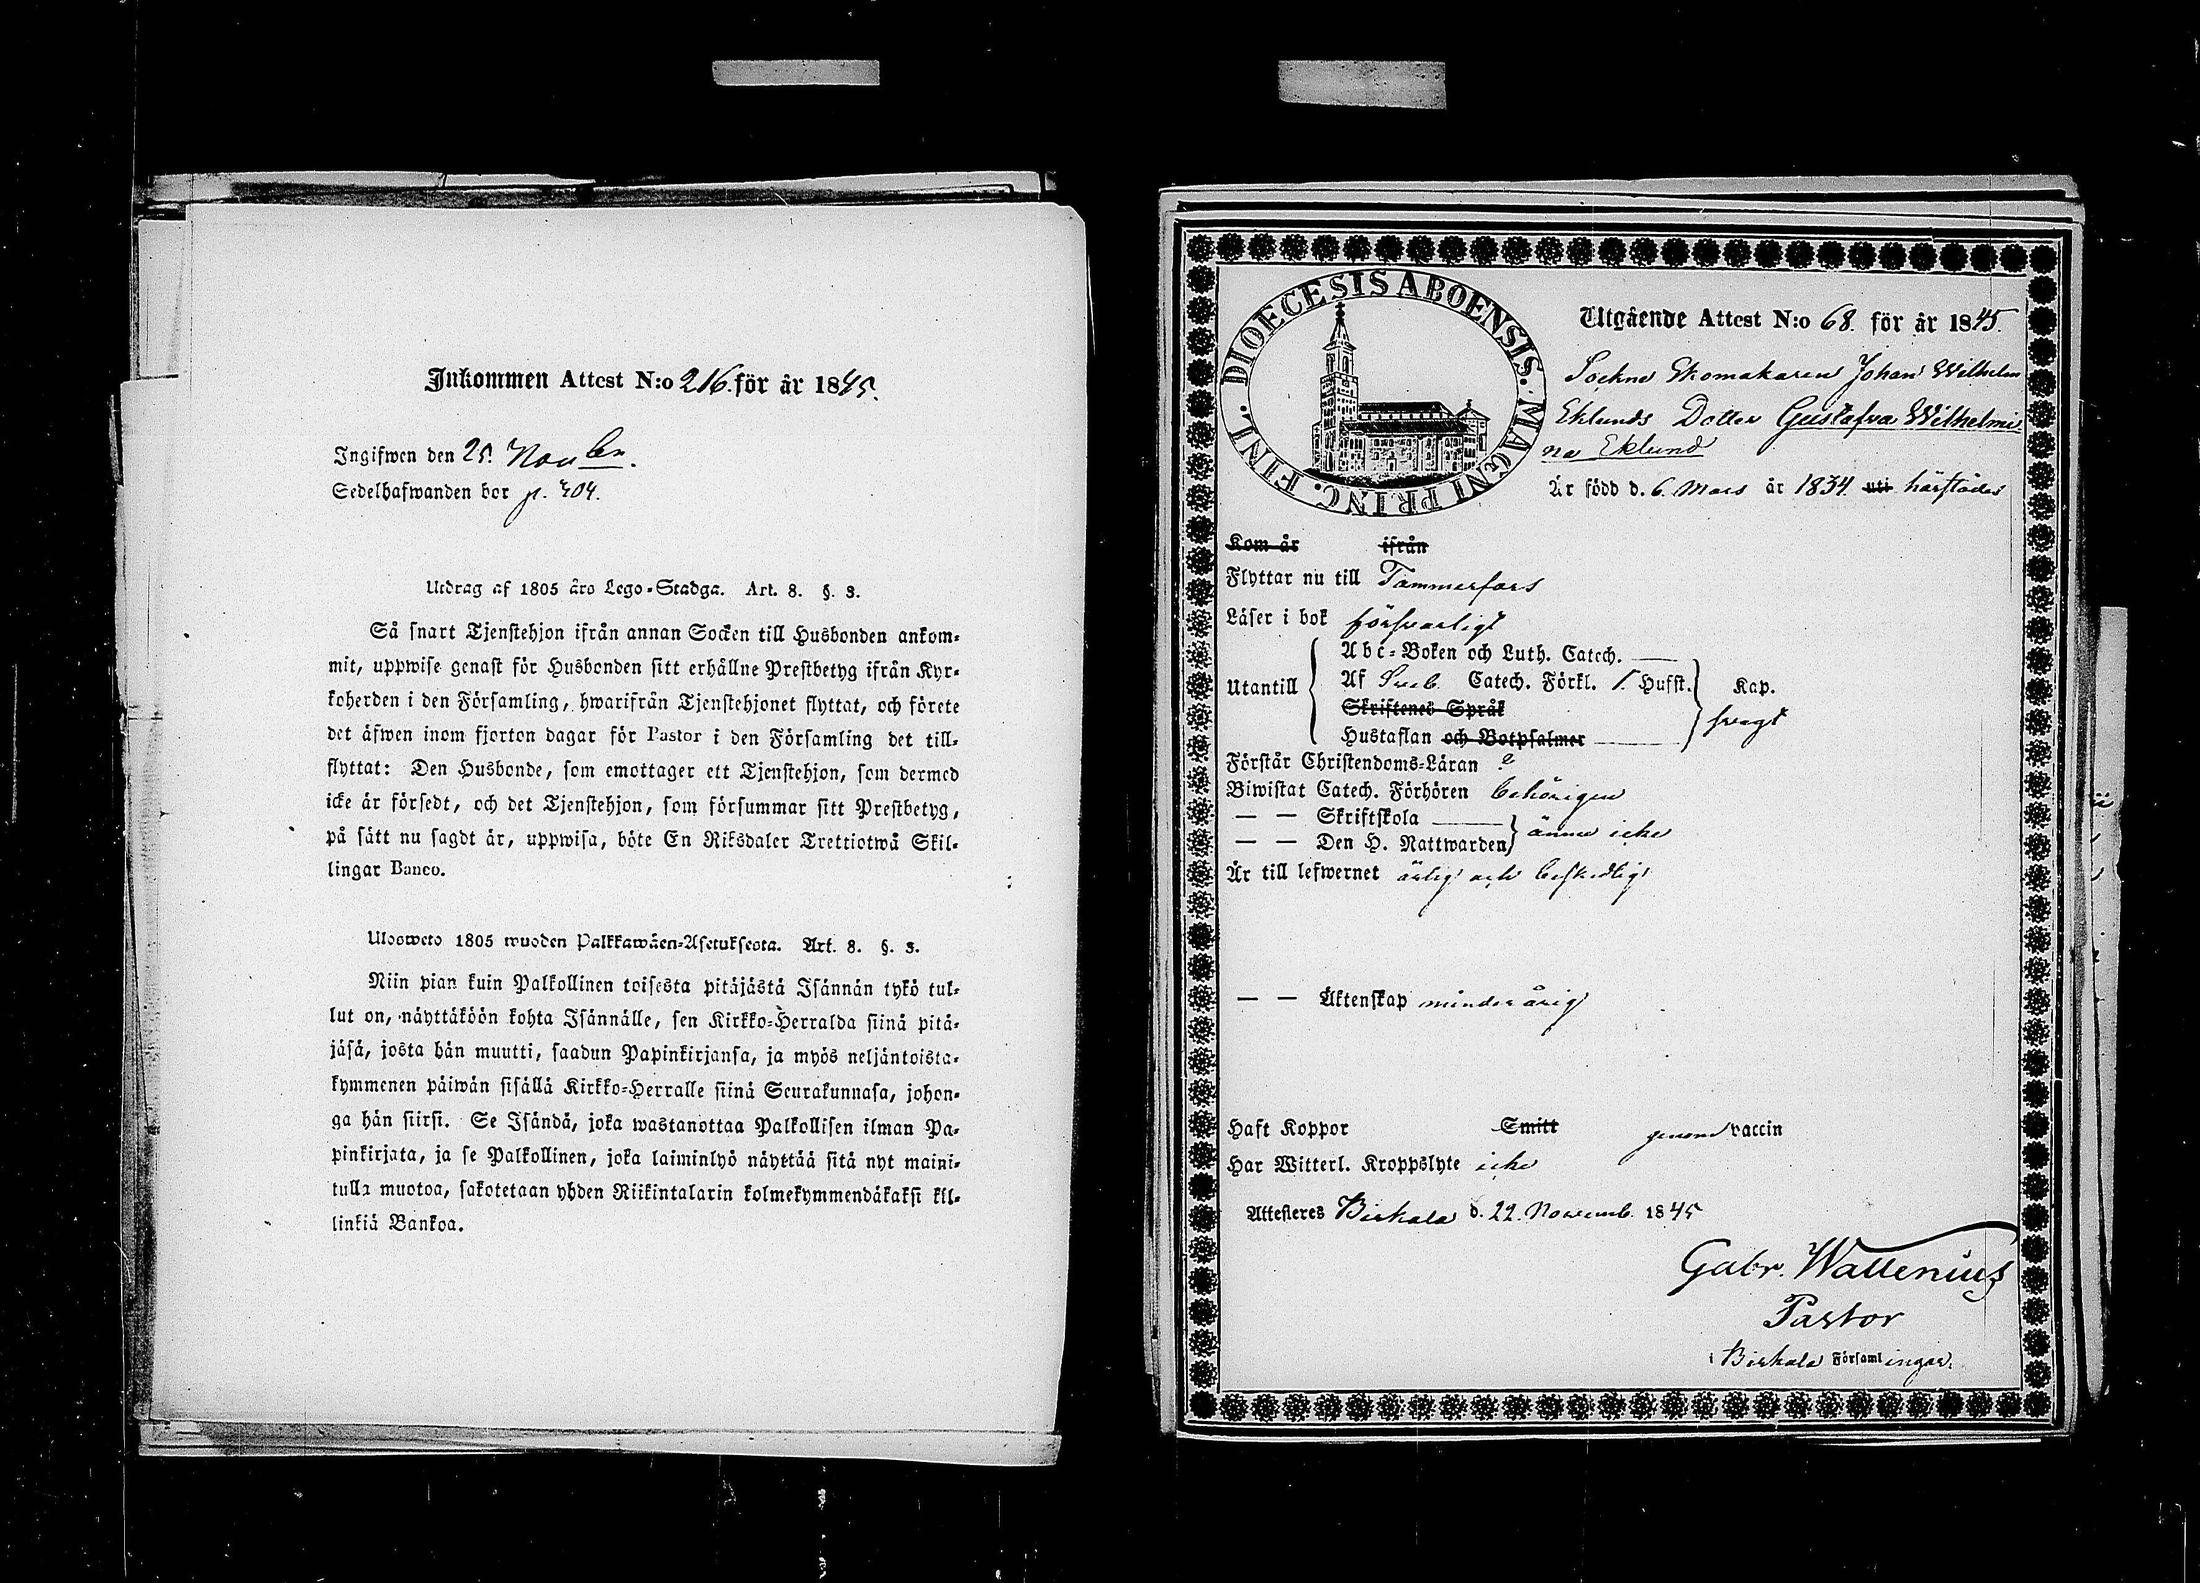 Inkommen Attest N:o 216. för år 1845.
Ingifwen den 25. Nov ber.
Sedelhafwanden bor p. 404.
Utdrag af 1805 års Lego-Stadga. Art. 8. §. 3.
Så snart Tjenstehjon ifrån annan Socken till Husbonden ankom-
mit, uppwise genast för Husbonden sitt erhållne Prestbetyg ifrån Kyr-
koherden i den Församling, hwarifrån Tjenstehjonet flyttat, och förete
det äfwen inom fjorton dagar för Pastor i den Församling det till-
flyttat: Den Husbonde, som emottager ett Tjenstehjon, som dermed
icke är försedt, och det Tjenstehjon, som försummar sitt Prestbetyg,
på sätt nu sagdt är, uppwisa, böte En Riksdaler Trettiotwå Skil-
lingar Banco.
Ulosweto 1805 wuoden Palkkawäen-Asetuksesta. Art. 8. §. 3.
Niin pian kuin Palkollinen toisesta pitäjästä Isännän tykö tul-
lut on, näyttäköön kohta Isännälle, sen Kirkko-Herralda siinä pitä-
jäsä, josta hän muutti, saadun Papinkirjansa, ja myös neljäntoista-
kymmenen päiwän sisällä Kirkko-Herralle siinä Seurakunnasa, johon-
ga hän siirsi. Se Isändä, joka wastanottaa Palkollisen ilman Pa-
pinkirjata, ja se Palkollinen, joka laiminlyö näyttää sitä nyt maini-
tulla muotoa, sakotetaan yhden Riikintalarin kolmekymmendäkaksi kil-
linkiä Bankoa.
DIOECESIS ABOENSIS. MAGNI PRINC. FINL.
Utgående Attest N:o 68. för år 1845.
Sockne Skomakaren Johan Wilhelm
Eklunds Dotter Gustafva Wilhelmi
na Eklund
Är född d. 6. Mars år 1834. uti härstädes
Kom år ifrån
Flyttar nu till Tammerfors
Läser i bok försvarligt
Utantill
Abc-Boken och Luth. Catech.
Af Sveb. Catech. Förkl. 1. Hufst. Kap.
Skriftenes Språk
svagt
Hustaflan och Botpsalmer
Förstår Christendoms-Läran
Biwistat Catech. Förhören behörigen
— — Skriftskola
ännu icke
— — Den H. Nattwarden
Är till lefwernet ärlig och beskedlig
— — Äktenskap minderårig
Haft Koppor Smitt genom vaccin
Har Witterl. Kroppslyte icke
Attesteres Birkala d. 22. Novemb. 1845
Gabr. Wallenius
Pastor
i Birkala Församlingar.